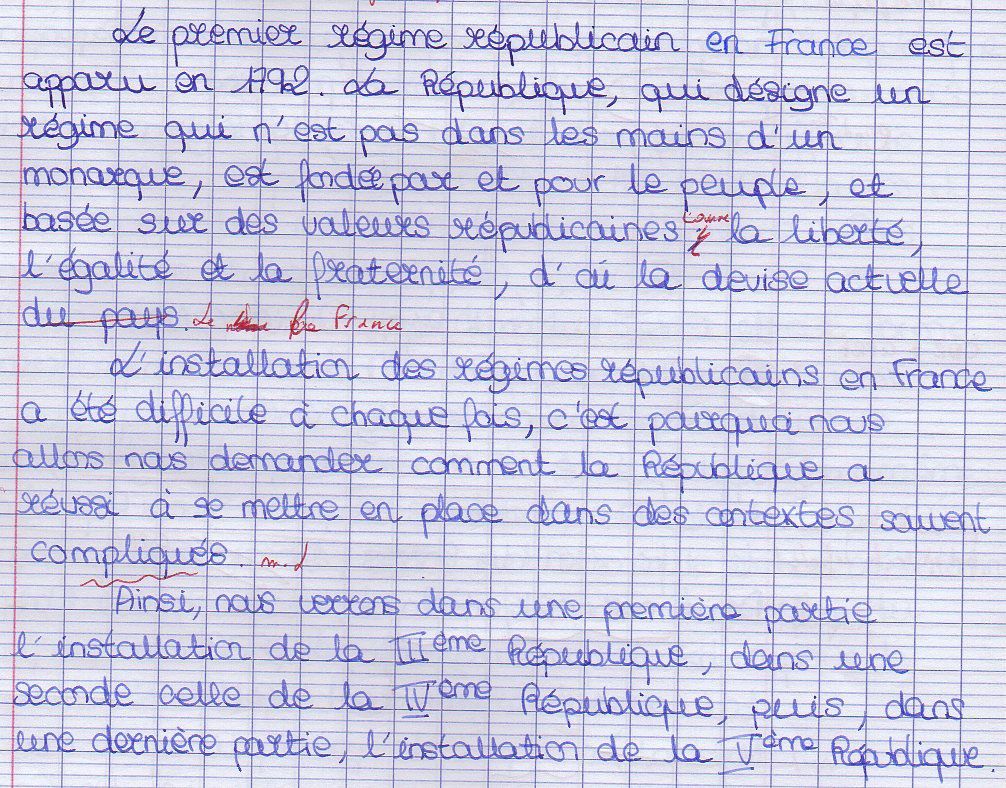 Le premier régime républicain en France est
apparu en 1792. La République, qui désigne un
régime qui n'est pas dans les mains d'un
monarque, est fondée par et pour le peuple, et
basée sur des valeurs républicaines comme la liberté,
l'égalité et la fraternité, d'où la devise actuelle
du pays. de France
L'installation des régimes républicains en France
a été difficile à chaque fois, c'est pourquoi nous
allons nous demander comment la République a
réussi à se mettre en place dans des contextes souvent
compliqués. m.d
Ainsi, nous verrons dans une première partie
l'installation de la IIIème République, dans une
seconde celle de la IVème République, puis, dans
une dernière partie, l'installation de la Vème République.